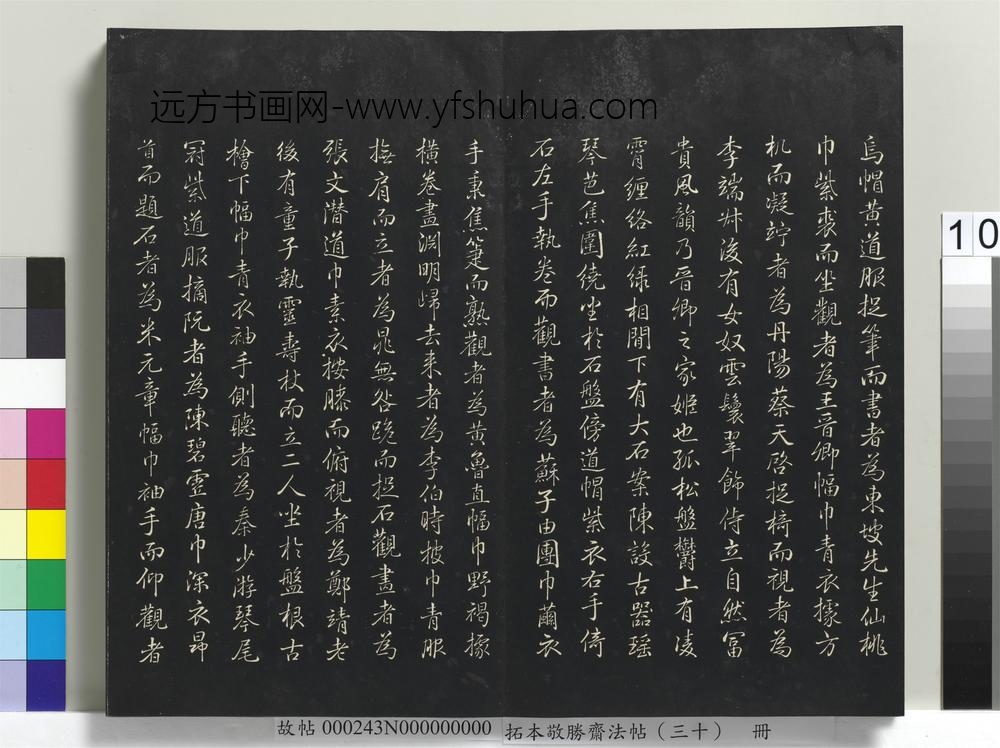 远方书画网-www.yfshuhua.com
烏帽黃道服捉筆而書者為東坡先生仙桃
巾紫裘而坐觀者為王晉卿幅巾青衣據方
机而凝竚者為丹陽蔡天啓捉椅而視者為
李端叔後有女奴雲鬟翠飾侍立自然富
貴風韻乃晉卿之家姬也孤松盤欝上有凌
霄纏絡紅綠相間下有大石案陳設古器瑤
琴芭蕉圍繞坐於石盤傍道帽紫衣右手倚
石左手執卷而觀書者為蘇子由團巾繭衣
手秉蕉箑而熟觀者為黃魯直幅巾野褐據
橫卷畫淵明歸去來者為李伯時披巾青服
撫肩而立者為晁無咎跪而捉石觀畫者為
張文潛道巾素衣按膝而俯視者為鄭靖老
後有童子執靈壽杖而立二人坐於盤根古
檜下幅巾青衣袖手側聽者為秦少游琴尾
冠紫道服摘阮者為陳碧虛唐巾深衣昂
首而題石者為米元章幅巾袖手而仰觀者
10
故帖 000243N000000000 拓本敬勝齋法帖（三十） 冊